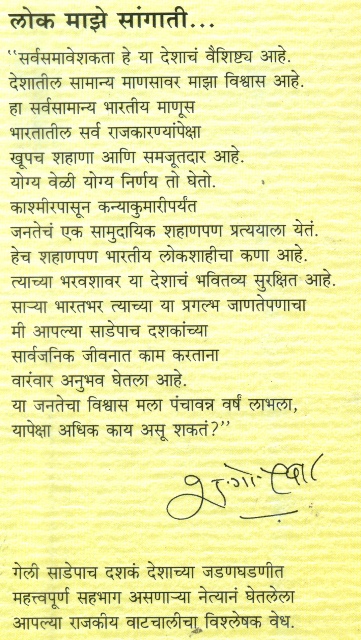 लोक माझे सांगाती...
“सर्वसमावेशकता हे या देशाचं वैशिष्ट्य आहे.
देशातील सामान्य माणसावर माझा विश्वास आहे.
हा सर्वसामान्य भारतीय माणूस
भारतातील सर्व राजकारण्यांपेक्षा
खूपच शहाणा आणि समजूतदार आहे.
योग्य वेळी योग्य निर्णय तो घेतो.
काश्मीरपासून कन्याकुमारीपर्यंत
जनतेचं एक सामुदायिक शहाणपण प्रत्ययाला येतं.
हेच शहाणपण भारतीय लोकशाहीचा कणा आहे.
त्याच्या भरवशावर या देशाचं भवितव्य सुरक्षित आहे.
साऱ्या भारतभर त्याच्या या प्रगल्भ जाणतेपणाचा
मी आपल्या साडेपाच दशकांच्या
सार्वजनिक जीवनात काम करताना
वारंवार अनुभव घेतला आहे.
या जनतेचा विश्वास मला पंचावन्न वर्षं लाभला,
यापेक्षा अधिक काय असू शकतं?”
गेली साडेपाच दशकं देशाच्या जडणघडणीत
महत्त्वपूर्ण सहभाग असणाऱ्या नेत्यानं घेतलेला
आपल्या राजकीय वाटचालीचा विश्लेषक वेध.